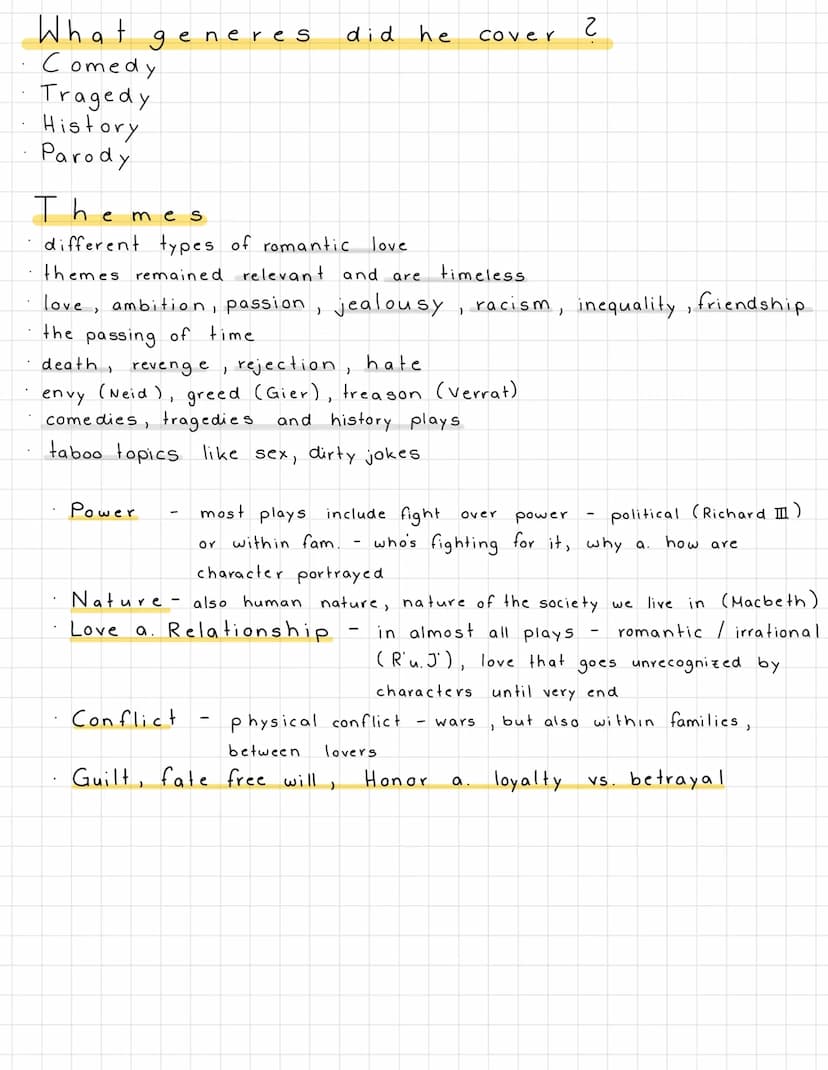 What generes did he cover ?
· Comedy
· Tragedy
· History
· Parody
Themes
· different types of romantic love
· themes remained relevant and are timeless
· love, ambition, passion, jealousy, racism, inequality, friendship
· the passing of time
· death, revenge, rejection, hate
· envy (Neid), greed (Gier), treason (Verrat)
· comedies, tragedies and history plays
· taboo topics like sex, dirty jokes
· Power - most plays include fight over power - political (Richard III)
or within fam. - who's fighting for it, why a. how are
character portrayed
· Nature - also human nature, nature of the society we live in (Macbeth)
· Love a. Relationship - in almost all plays - romantic / irrational
(R'u.J'), love that goes unrecognized by
characters until very end
· Conflict - physical conflict - wars, but also within families,
between lovers
· Guilt, fate free will, Honor a. loyalty vs. betrayal